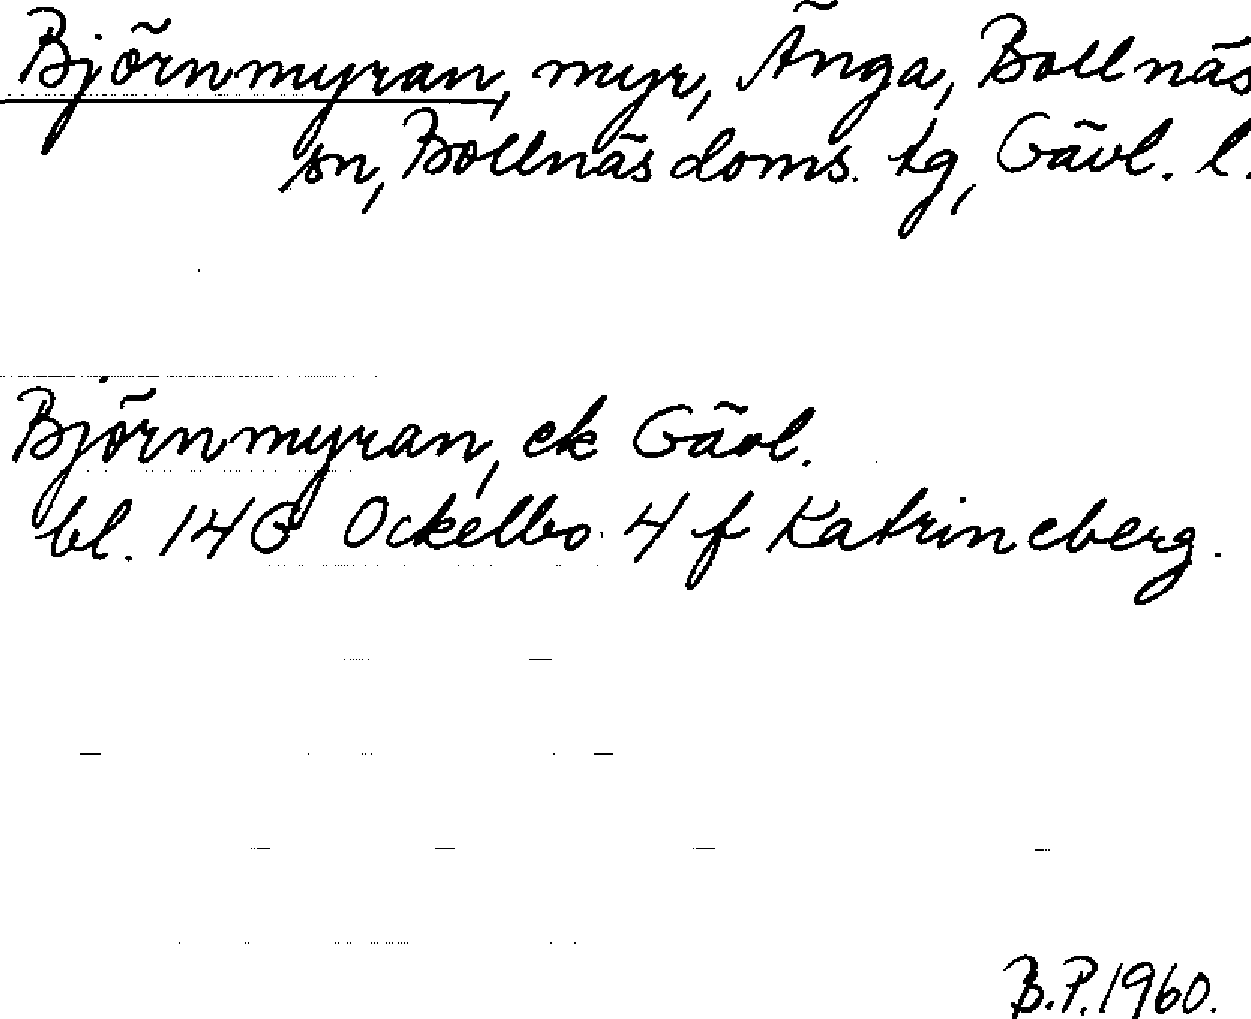 Björnmyran, myr, Änga, Bollnäs
sn, Bollnäs doms. tg, Gävl. l.
Björnmyran, ek Gävl.
bl. 14G Ockelbo 4 f Katrineberg.
B.P. 1960.